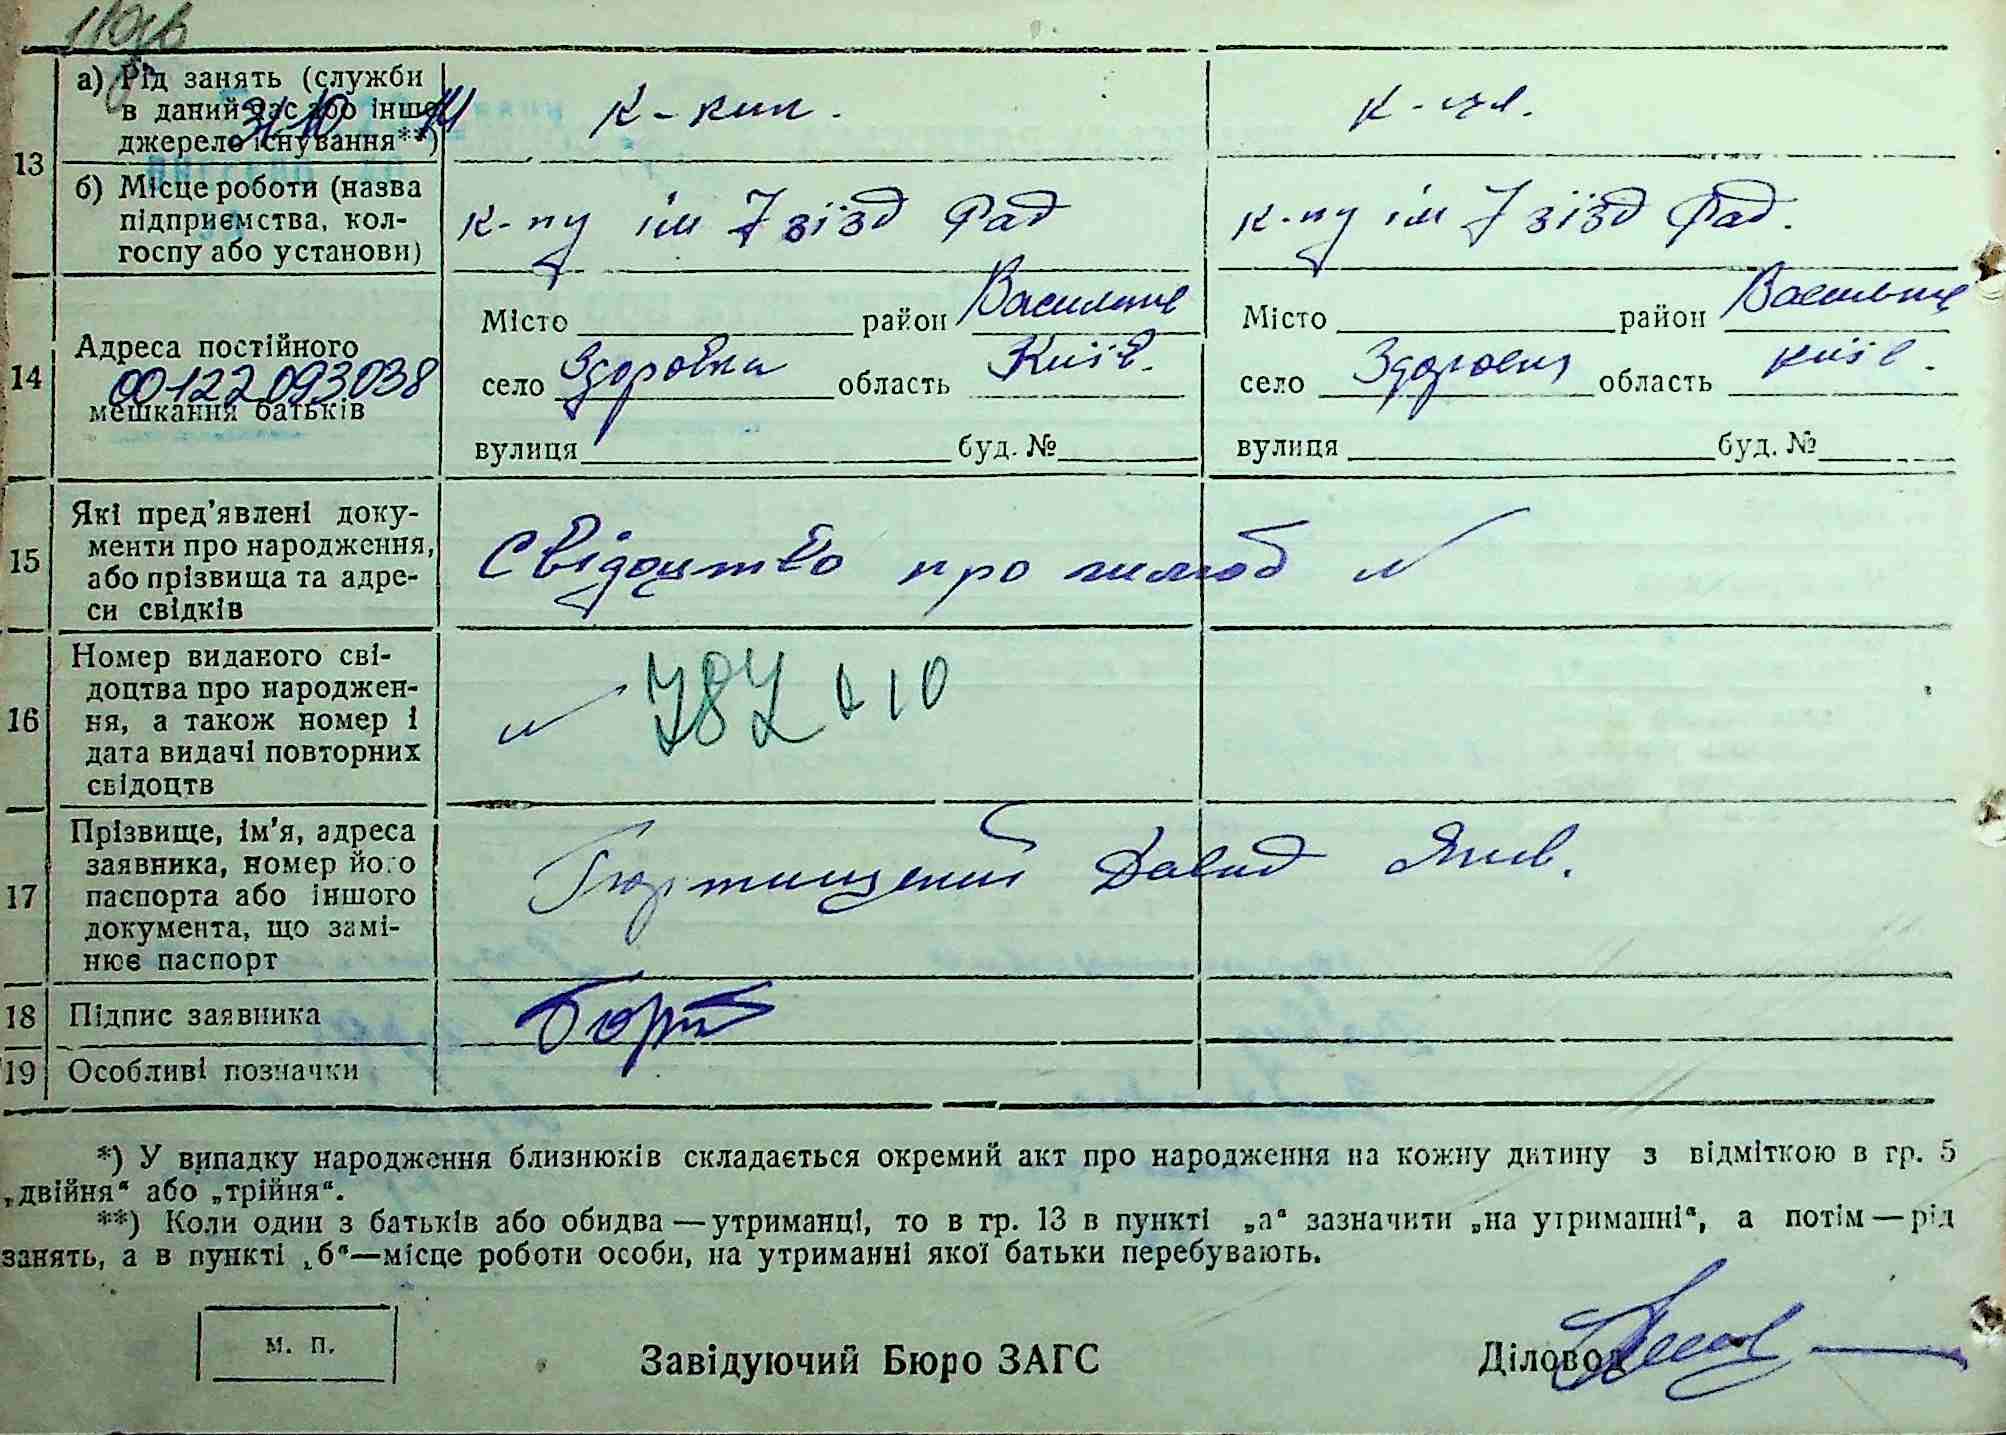 13
а) Рід занять (служби
в даний час або інше
джерело існування**)
31 10
к-ник.
к-ця.
б) Місце роботи (назва
підприємства, кол-
госпу або установи)
к-пу ім 7 зїзд Рад
к-пу ім 7 зїзд Рад.
14
Адреса постійного
мешкання батьків
00122093038
Місто район Василькíв
село Здоровка область Київ.
вулиця буд. №
Місто район
село область Київ.
вулиця буд. №
15
Які пред'явлені доку-
менти про народження,
або прізвища та адре-
си свідків
Свідоцтво про шлюб №
16
Номер виданого сві-
доцтва про народжен-
ня, а також номер і
дата видачі повторних
свідоцтв
№
17
Прізвище, ім'я, адреса
заявника, номер його
паспорта або іншого
документа, що замі-
нює паспорт
Давид Яков.
18
Підпис заявника
19
Особливі позначки
*) У випадку народження близнюків складається окремий акт про народження на кожну дитину з відміткою в гр. 5
„двійня“ або „трійня“.
**) Коли один з батьків або обидва — утриманці, то в гр. 13 в пункті „а“ зазначити „на утриманні“, а потім — рід
занять, а в пункті „б“—місце роботи особи, на утриманні якої батьки перебувають.
м. п.
Завідуючий Бюро ЗАГС
Діловод